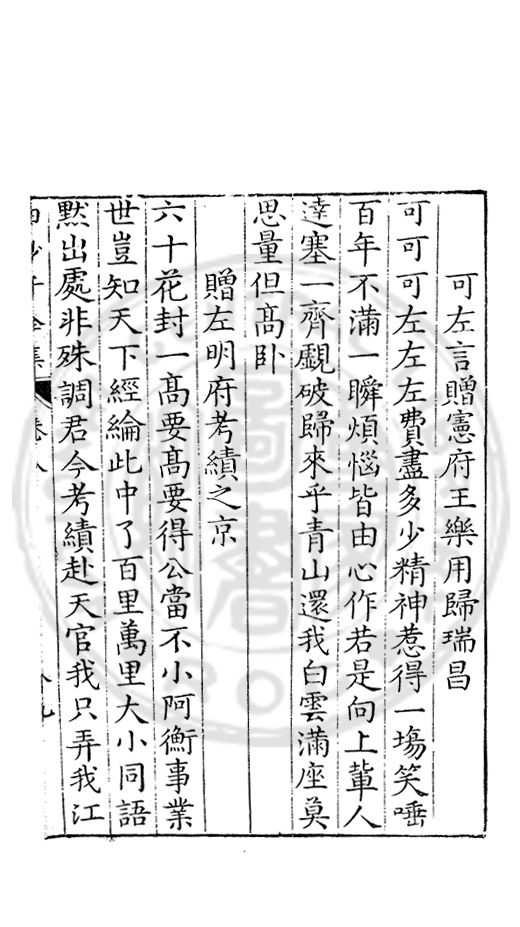 可左言贈憲府王樂用歸瑞昌
可可可左左左費盡多少精神惹得一塲笑唾
百年不滿一瞬煩惱皆由心作若是向上輩人
達塞一齊覷破歸來乎青山還我白雲滿座莫
思量但髙卧
贈左明府考績之京
六十花封一髙要髙要得公當不小阿衡事業
世豈知天下經綸此中了百里萬里大小同語
默出處非殊調君今考績赴天官我只弄我江
子全集
卷八